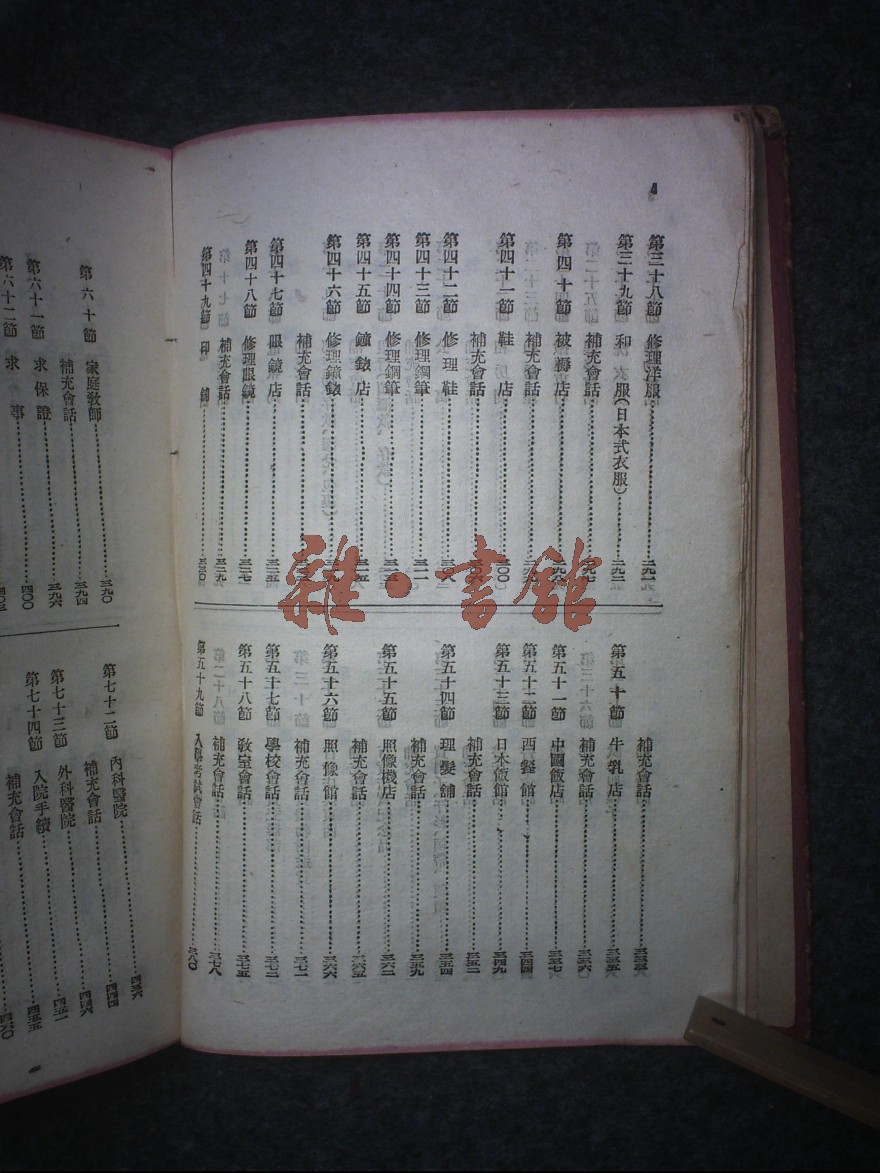 4
第三十八節 修理洋服…二九一
第三十九節 和衣服(日本式衣服)…二九二
補充會話…二九七
第四十節 被褥店…二九八
補充會話…二九九
第四十一節 鞋店…三〇〇
補充會話
第四十二節 修理鞋
第四十三節 修理鋼筆
第四十四節 修理鋼筆
第四十五節 鐘錶店
第四十六節 修理鐘錶
補充會話
第四十七節 眼鏡店…三二五
第四十八節 修理眼鏡…三二七
補充會話…三二九
第四十九節 印舖…三三〇
補充會話
第五十節 牛乳店
補充會話
第五十一節 中國飯店
第五十二節 西餐館…三四四
第五十三節 日本飯館…三四九
補充會話…三五二
第五十四節 理髮舖…三五四
補充會話…三五九
第五十五節 照像機店…三六二
補充會話…三六五
第五十六節 照像館…三六六
補充會話…三七一
第五十七節 學校會話…三七二
第五十八節 教室會話…三七五
補充會話…三七八
第五十九節 入學考試會話…三八〇
第六十節 家庭教師…三九〇
補充會話…三九四
第六十一節 求保證…三九六
第六十二節 求事…四〇〇
第七十二節 內科醫院…四三六
補充會話…四四四
第七十三節 外科醫院…四四六
第七十四節 入院手續…四五一
補充會話…四五五
雜·書館